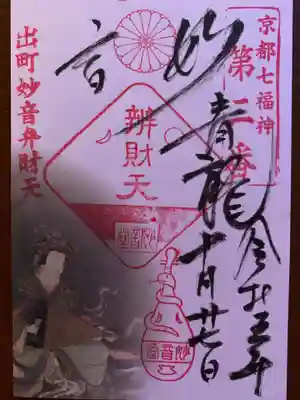 京都七福神
第二番
妙音
青龍
辨財天
妙音堂
十月廿七日
妙音堂
出町妙音弁財天